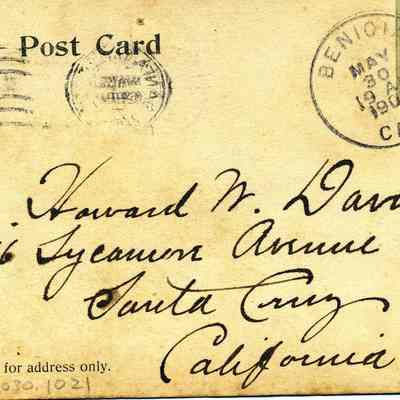 Post Card
BENICIA
MAY
30
19
A
190
CA
Howard W. Dav
6 Sycamore Avenue
Santa Cruz
California
for address only.
030.1021